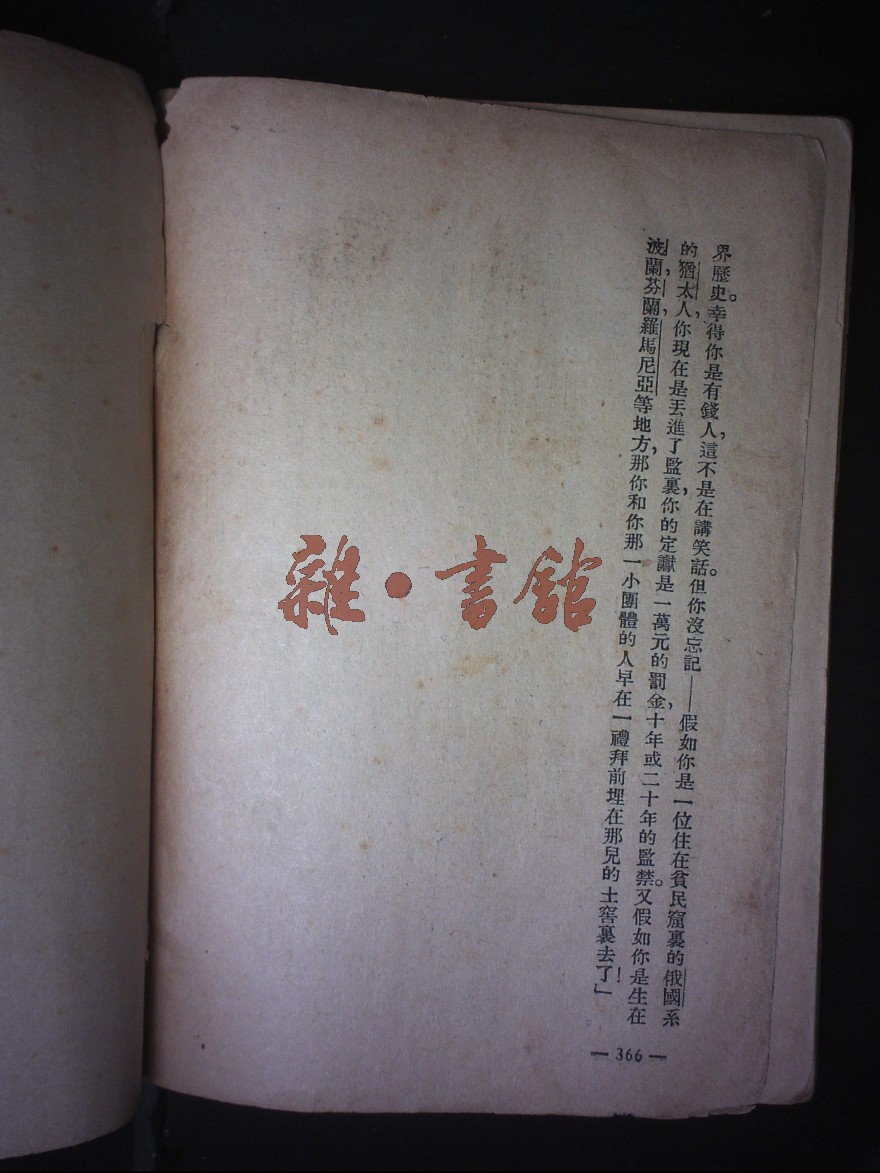 界歷史。幸得你是有錢人，這不是在講笑話。但你沒忘記——假如你是一位住在貧民窟裏的俄國系
的猶太人，你現在是丟進了監裏，你的定讞是一萬元的罰金，十年或二十年的監禁。又假如你是生在
波蘭，芬蘭，羅馬尼亞等地方，那你和你那一小團體的人早在一禮拜前埋在那兒的土窖裏去了！」
— 366 —
雜·書館